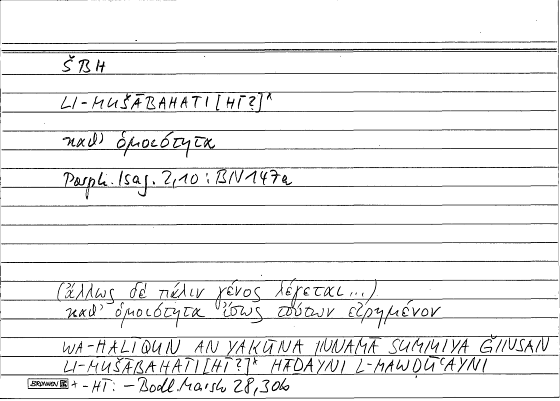 ŠBH
LI-MUŠĀBAHATI[HĪ?]*
καθ' ὁμοιότητα
Porph. Isag. 2,10 : BN 147a
(ἄλλως δὲ πάλιν γένος λέγεται...)
καθ' ὁμοιότητα ἴσως τούτων εἰρημένον
WA-HALĪQUN AN YAKŪNA INNAMĀ SUMMIYA ǦINSAN
LI-MUŠĀBAHATI[HĪ?]* HĀḎAYNI L-MAWḌŪʿAYNI
BRUNNEN * -HĪ: -Bodl. Marsh 28,30b